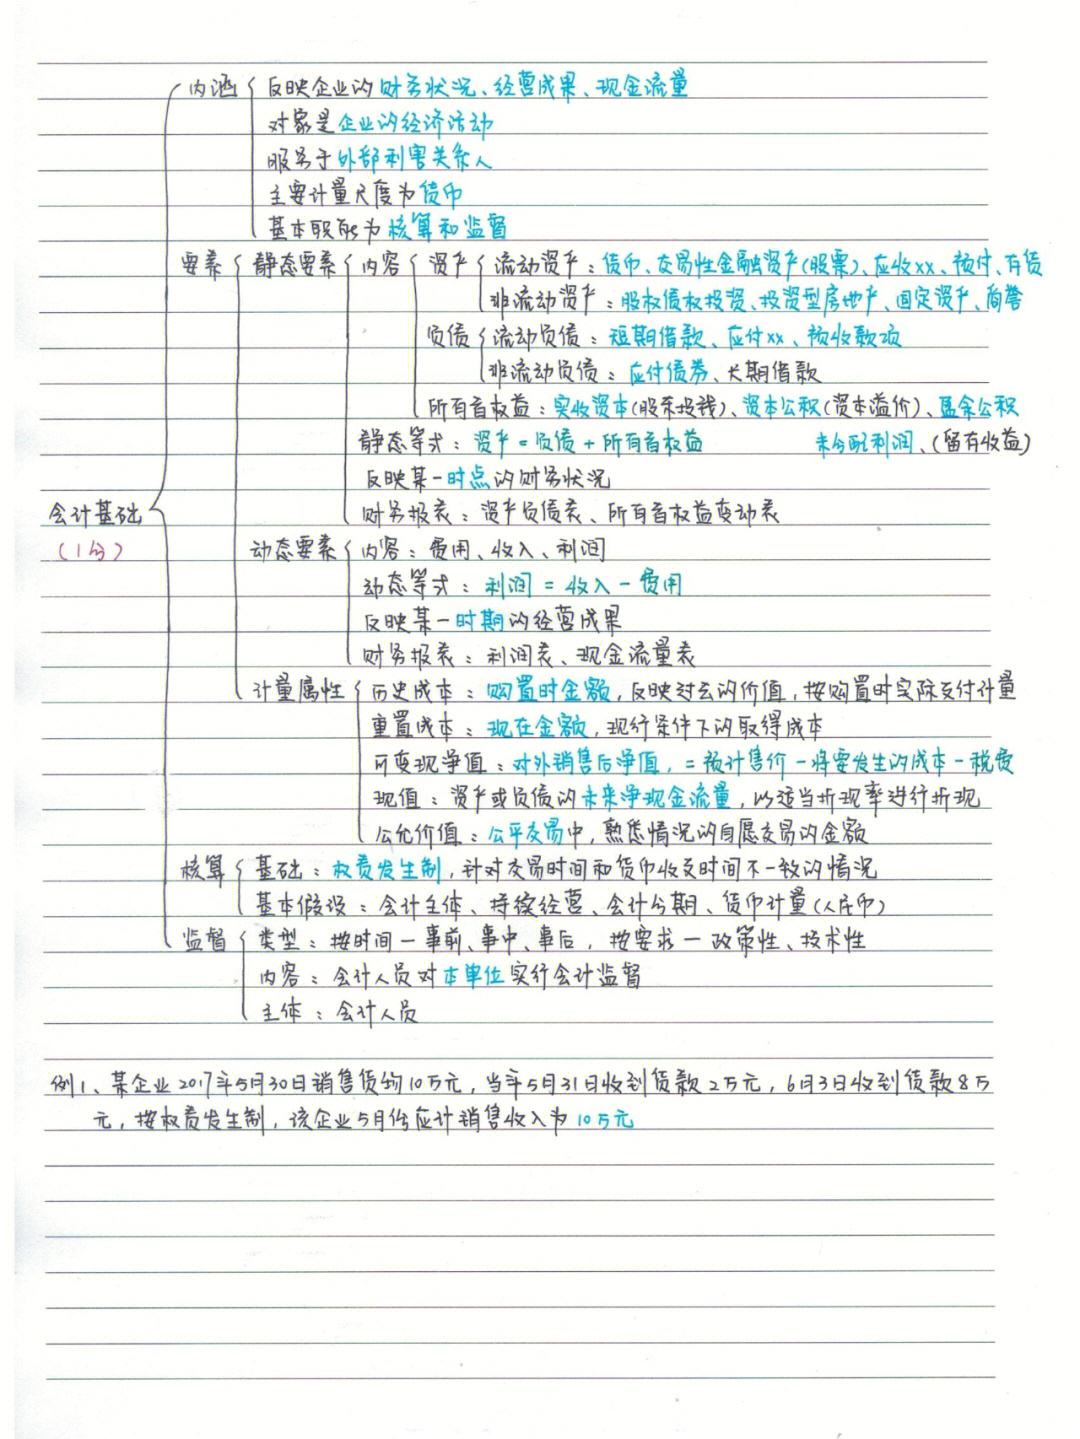 内涵 反映企业的财务状况、经营成果、现金流量
对象是企业的经济活动
服务于外部利害关系人
主要计量尺度为货币
基本职能为核算和监督
要素 静态要素 内容 资产 流动资产：货币、交易性金融资产(股票)、应收xx、预付、存货
非流动资产：股权债权投资、投资型房地产、固定资产、商誉
负债 流动负债：短期借款、应付xx、预收款项
非流动负债：应付债券、长期借款
所有者权益：实收资本(股东投钱)、资本公积(资本溢价)、盈余公积
静态等式：资产=负债+所有者权益 未分配利润、(留存收益)
反映某一时点的财务状况
会计基础 财务报表：资产负债表、所有者权益变动表
(1分) 动态要素 内容：费用、收入、利润
动态等式：利润=收入-费用
反映某一时期的经营成果
财务报表：利润表、现金流量表
计量属性 历史成本：购置时金额,反映过去的价值,按购置时实际支付计量
重置成本：现在金额,现行条件下的取得成本
可变现净值：对外销售后净值,=预计售价-将要发生的成本-税费
现值：资产或负债的未来净现金流量,以适当折现率进行折现
公允价值：公平交易中,熟悉情况的自愿交易的金额
核算 基础：权责发生制,针对交易时间和货币收支时间不一致的情况
基本假设：会计主体、持续经营、会计分期、货币计量(人民币)
监督 类型：按时间一事前、事中、事后,按要求一政策性、技术性
内容：会计人员对本单位实行会计监督
主体：会计人员
例1、某企业2017年5月30日销售货物10万元,当年5月31日收到货款2万元,6月3日收到货款8万
元,按权责发生制,该企业5月份应计销售收入为10万元